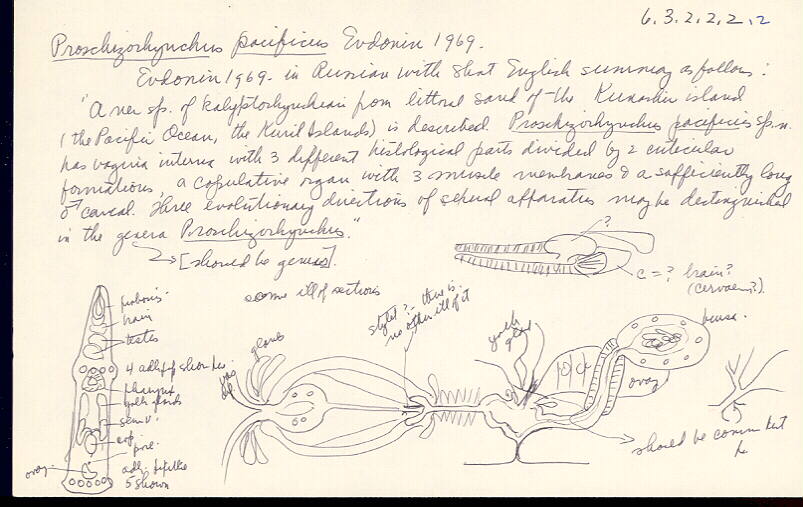 6.3.2.2.2.2
Proschizorhynchus pacificus Evdonin 1969.
Evdonin 1969. in Russian with short English summary as follows:
"A new sp. of kalyptorhynchian from littoral sand of the Kunashir island
(the Pacific Ocean, the Kuril Islands) is described. Proschizorhynchus pacificus sp.n.
has vagina interna with 3 different histological parts divided by 2 cuticular
formations, a copulative organ with 3 muscle membranes & a sufficiently long
♂ canal. Three evolutionary directions of sexual apparatus may be distinguished
in the genera Proschizorhynchus."
[should be genus].
?
c = ? brain?
some ill of sections
stylet? - there is
no other ill of it
proboscis
brain
testes
4 adh.
pharynx
yolk glands
sem v.
cop
pore
adh. papillae
5 shown
ovary
glands
vas
def.
yolk
gland
ovary
bursa.
should be common duct